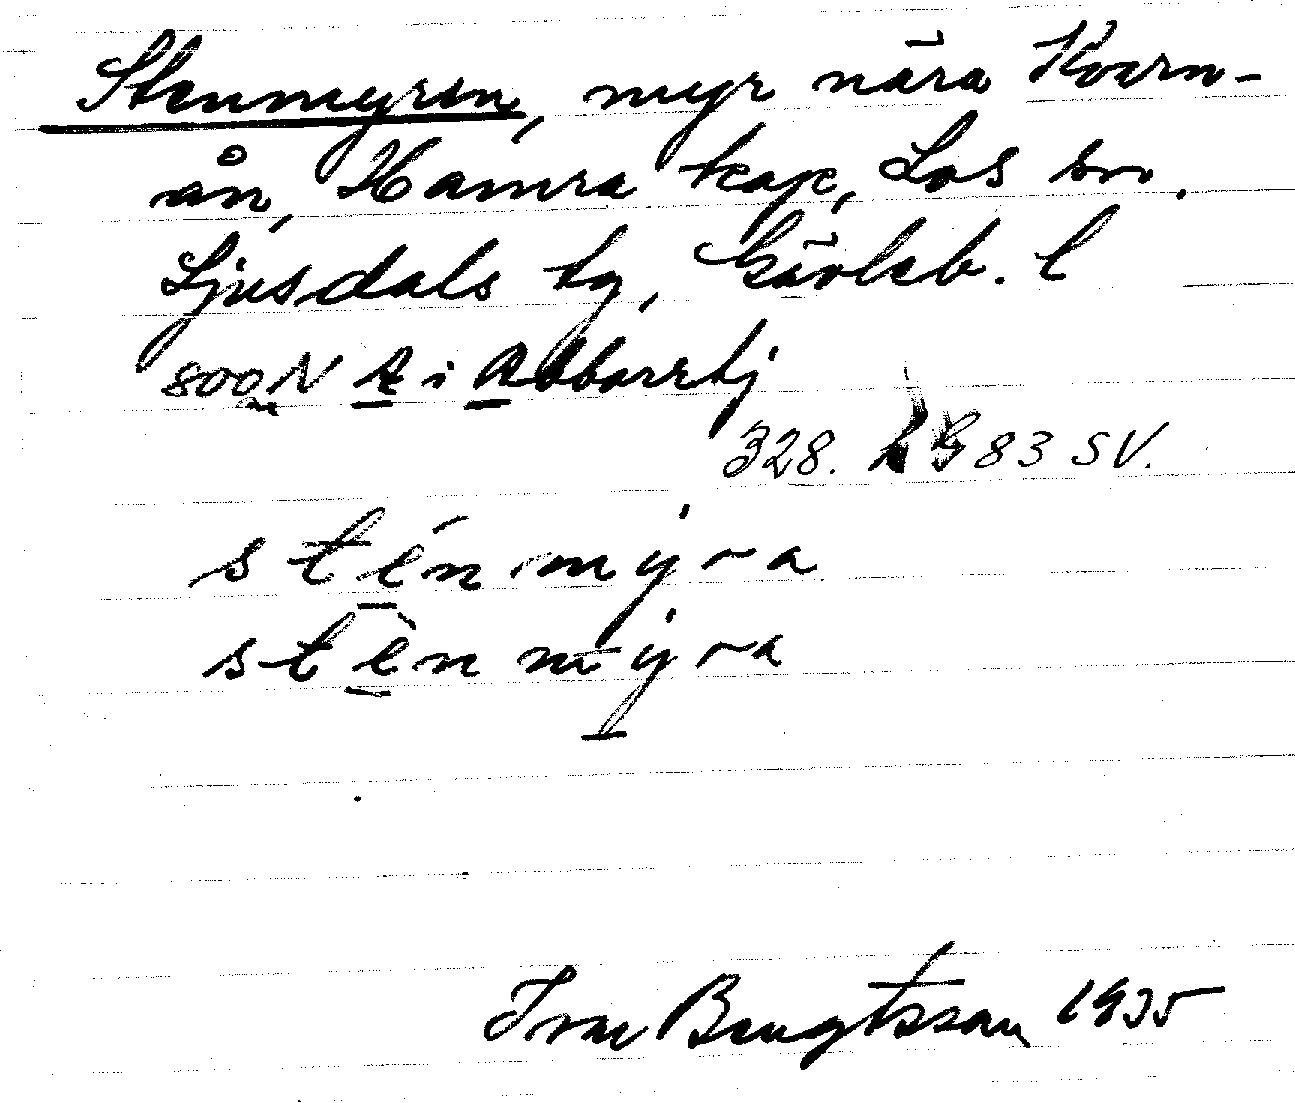 Stenmyren, myr nära Kvarn-
ån, Hamra kap, Los sn.
Ljusdals tg, Gävleb. l
800 m N A i Abborrtj
328. 83 SV.
sténmyra
stènmyra
Ivar Bengtsson 1935